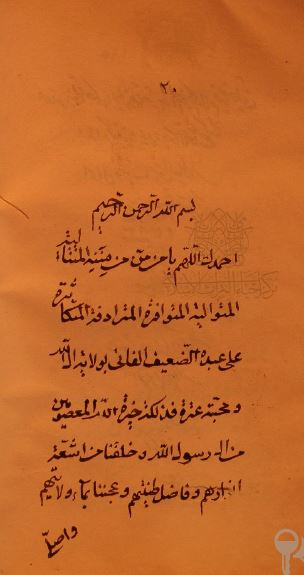 ٢٠
بسم الله الرحمن الرحيم
احمدك اللهم يا من منّ من مننه المتتالية
المتوالية المتوافرة المترادفة المتكاثرة
على عبده الضعيف الفاني بولاية الله
ومحبة عترة خيرة الله المعصومين
من آل رسول الله وخلقنا من اشعة
انوارهم وفاضل طينتهم وعجننا بماء ولايتهم
واصلّى